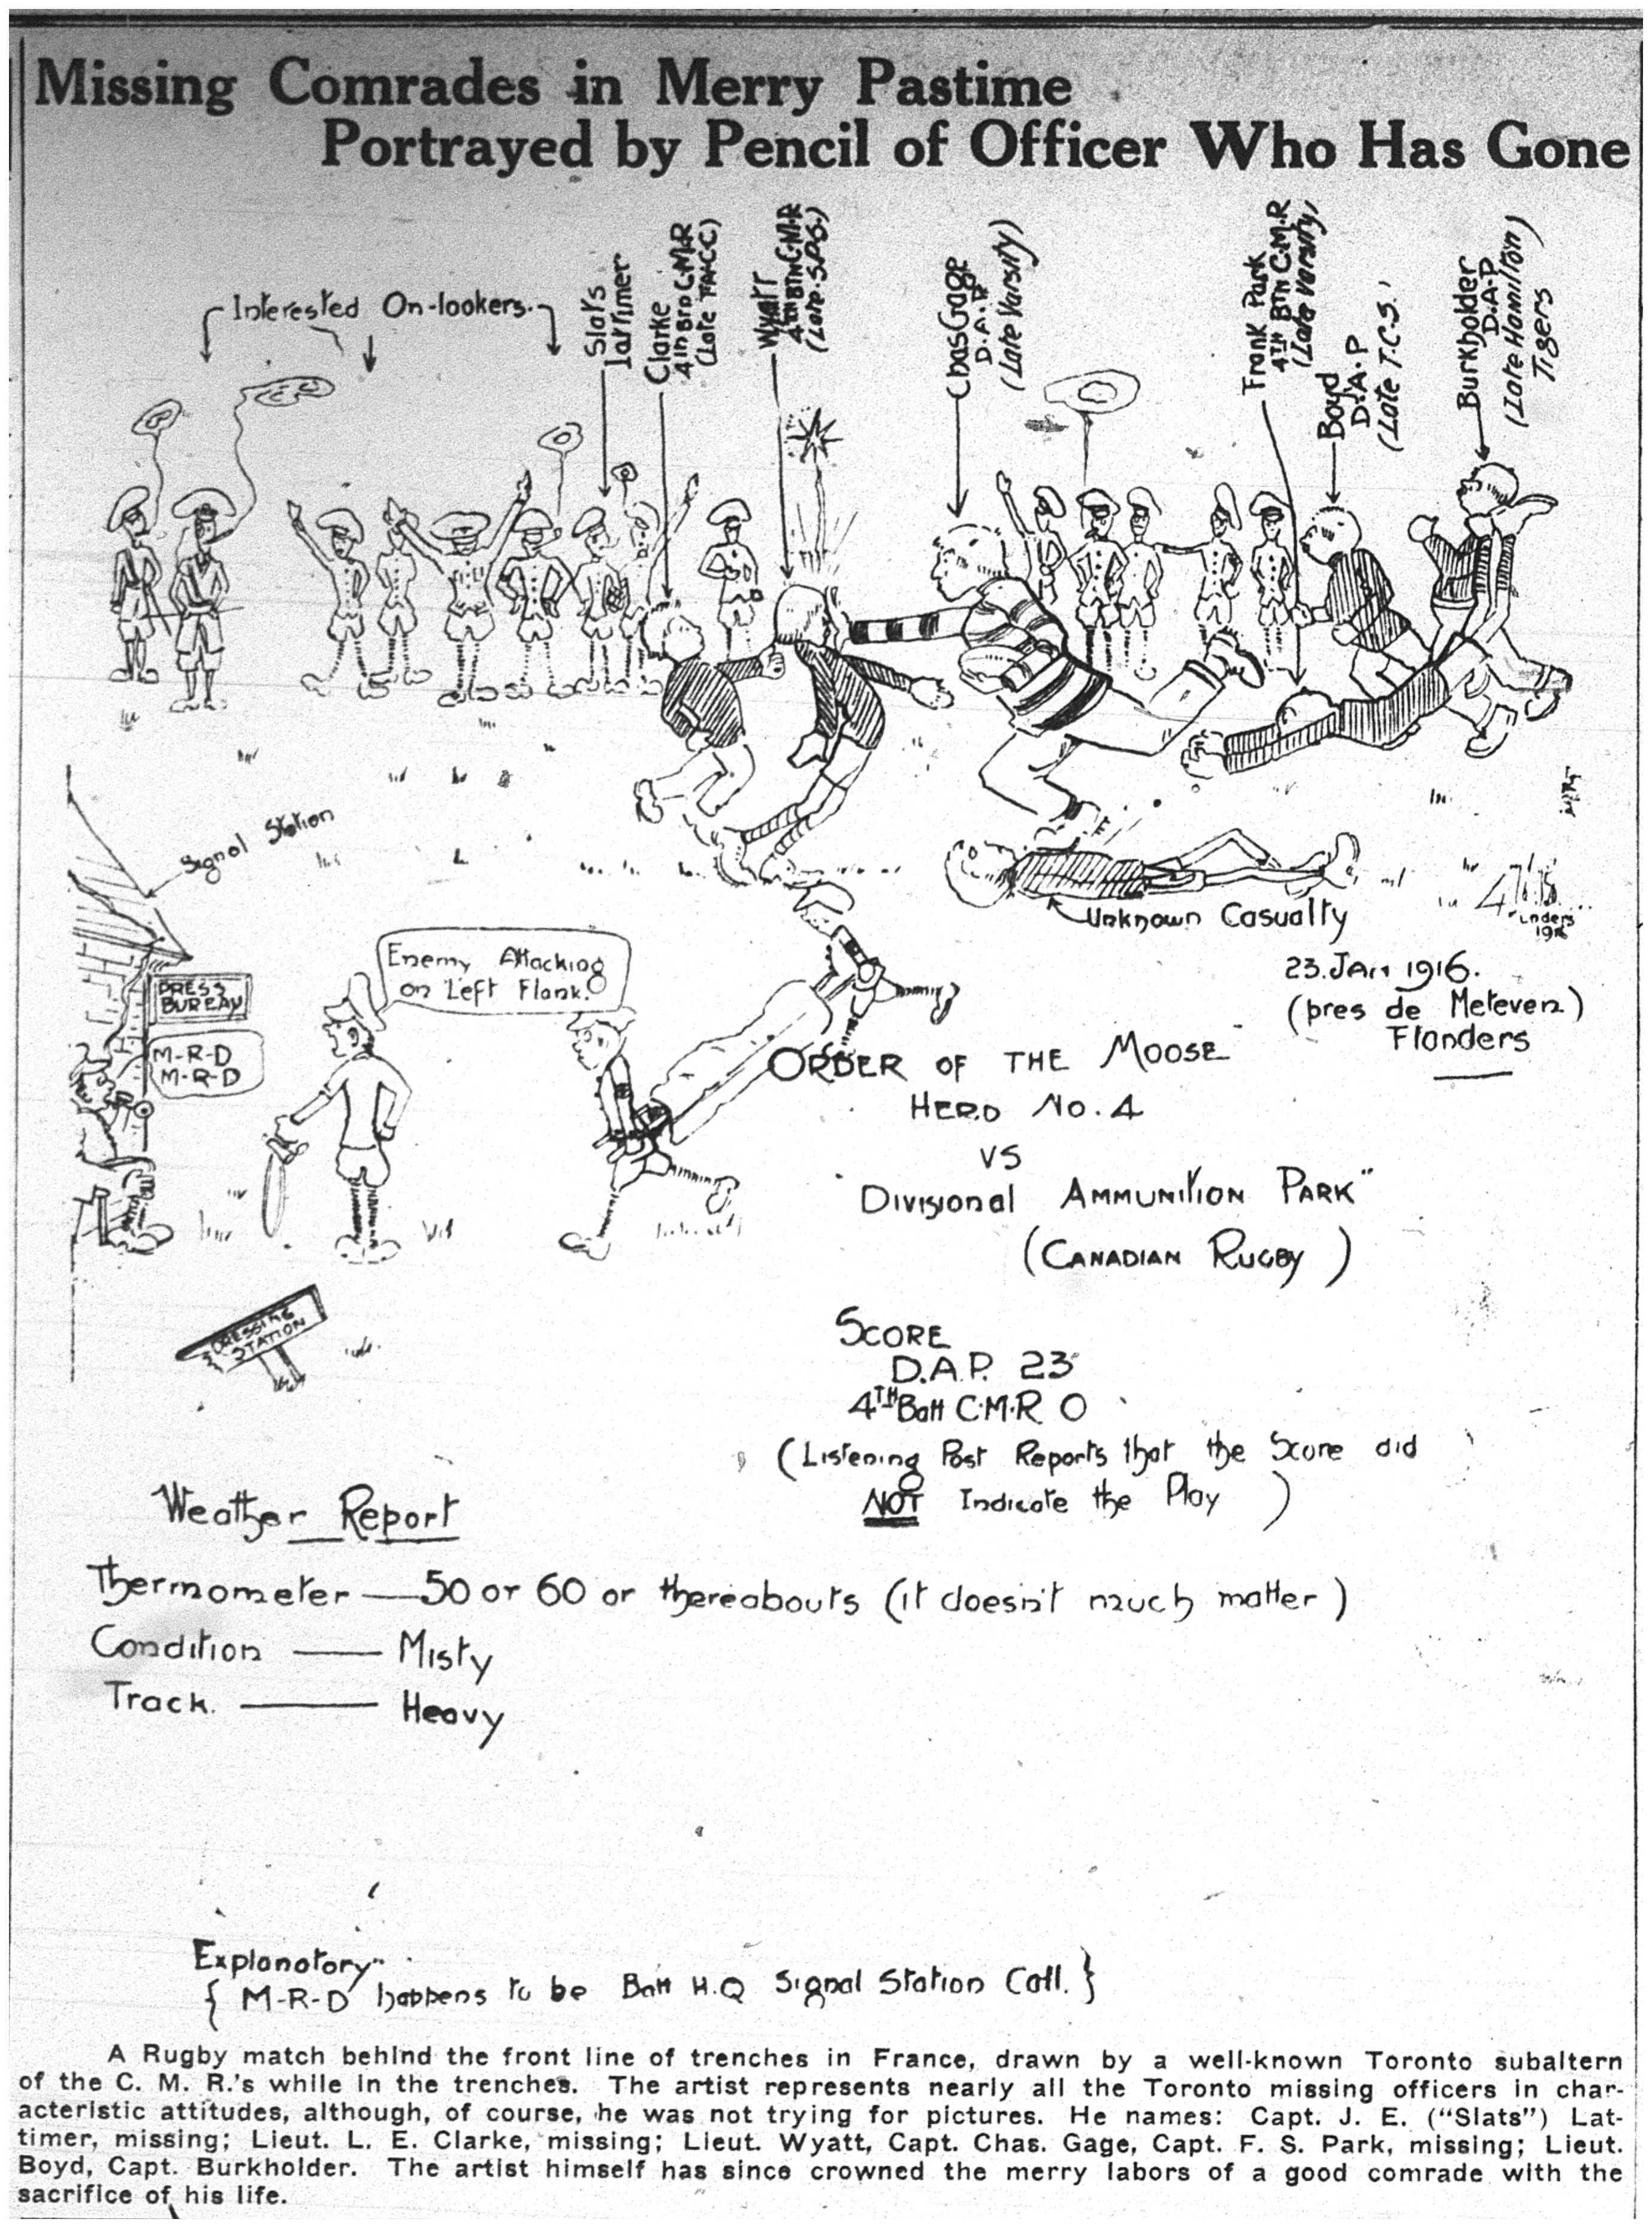 Missing Comrades in Merry Pastime
Portrayed by Pencil of Officer Who Has Gone
Interested On-lookers.
Slats
Lattimer
Clarke
4th B C.M.R
(Late
Wyatt
4th BTN C.M.R
(Late S.P.S.)
Chas Gage
D.A.P
(Late Varsity)
Frank Park
4TH BTN C.M.R
(Late Varsity)
Boyd
D.A.P
(Late T.C.S.)
Burkholder
D.A.P
(Late Hamilton
Tigers)
Signal Station
PRESS
BUREAU
M-R-D
M-R-D
Enemy Attacking
on Left Flank.
Unknown Casualty
23. Jan 1916.
(pres de Meteren)
Flanders
"ORDER OF THE MOOSE"
HERD NO. 4
VS
"DIVISIONAL AMMUNITION PARK"
(CANADIAN RUGBY)
DRESSING
STATION
SCORE
D.A.P. 23
4TH Batt C.M.R 0
(Listening Post Reports that the Score did
NOT Indicate the Play )
Weather Report
Thermometer — 50 or 60 or thereabouts (it doesn't much matter)
Condition — Misty
Track. — Heavy
Explanatory
{ M-R-D happens to be Batt H.Q Signal Station Call. }
A Rugby match behind the front line of trenches in France, drawn by a well-known Toronto subaltern
of the C. M. R.'s while in the trenches. The artist represents nearly all the Toronto missing officers in char-
acteristic attitudes, although, of course, he was not trying for pictures. He names: Capt. J. E. ("Slats") Lat-
timer, missing; Lieut. L. E. Clarke, missing; Lieut. Wyatt, Capt. Chas. Gage, Capt. F. S. Park, missing; Lieut.
Boyd, Capt. Burkholder. The artist himself has since crowned the merry labors of a good comrade with the
sacrifice of his life.